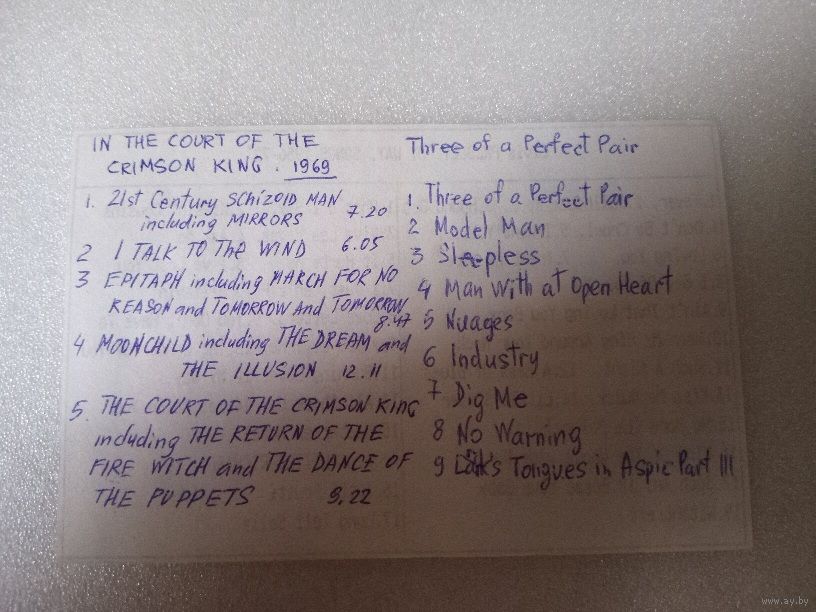 IN THE COURT OF THE
CRIMSON KING. 1969
1. 21st Century SCHIZOID MAN
including MIRRORS 7.20
2 I TALK TO The WIND 6.05
3 EPITAPH including MARCH FOR NO
REASON and TOMORROW And TOMORROW
8.47
4 MOONCHILD including THE DREAM and
THE ILLUSION 12.11
5. THE COURT OF THE CRIMSON KING
including THE RETURN OF THE
FIRE WITCH and THE DANCE OF
THE PUPPETS 9.22
Three of a Perfect Pair
1. Three of a Perfect Pair
2 Model Man
3 Sleepless
4 Man With at Open Heart
5 Nuages
6 Industry
7 Dig Me
8 No Warning
9 Tongues in Aspic Part III
www.ay.by